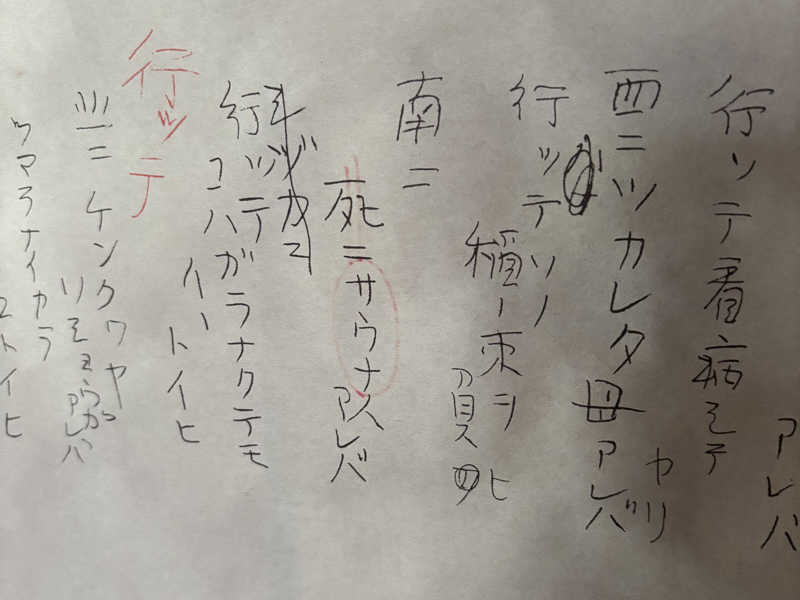 アレバ
行ッテ看病シテ
ヤリ
西ニツカレタ母アレバ
行ッテソノ
稲ノ束ヲ
負ヒ
南ニ
死ニサウナ人アレバ
行ッテ
コハガラナクテモ
イヽトイヒ
行ッテ
北ニケンクワヤ
ソショウガアレバ
ツマラナイカラ
トイヒ